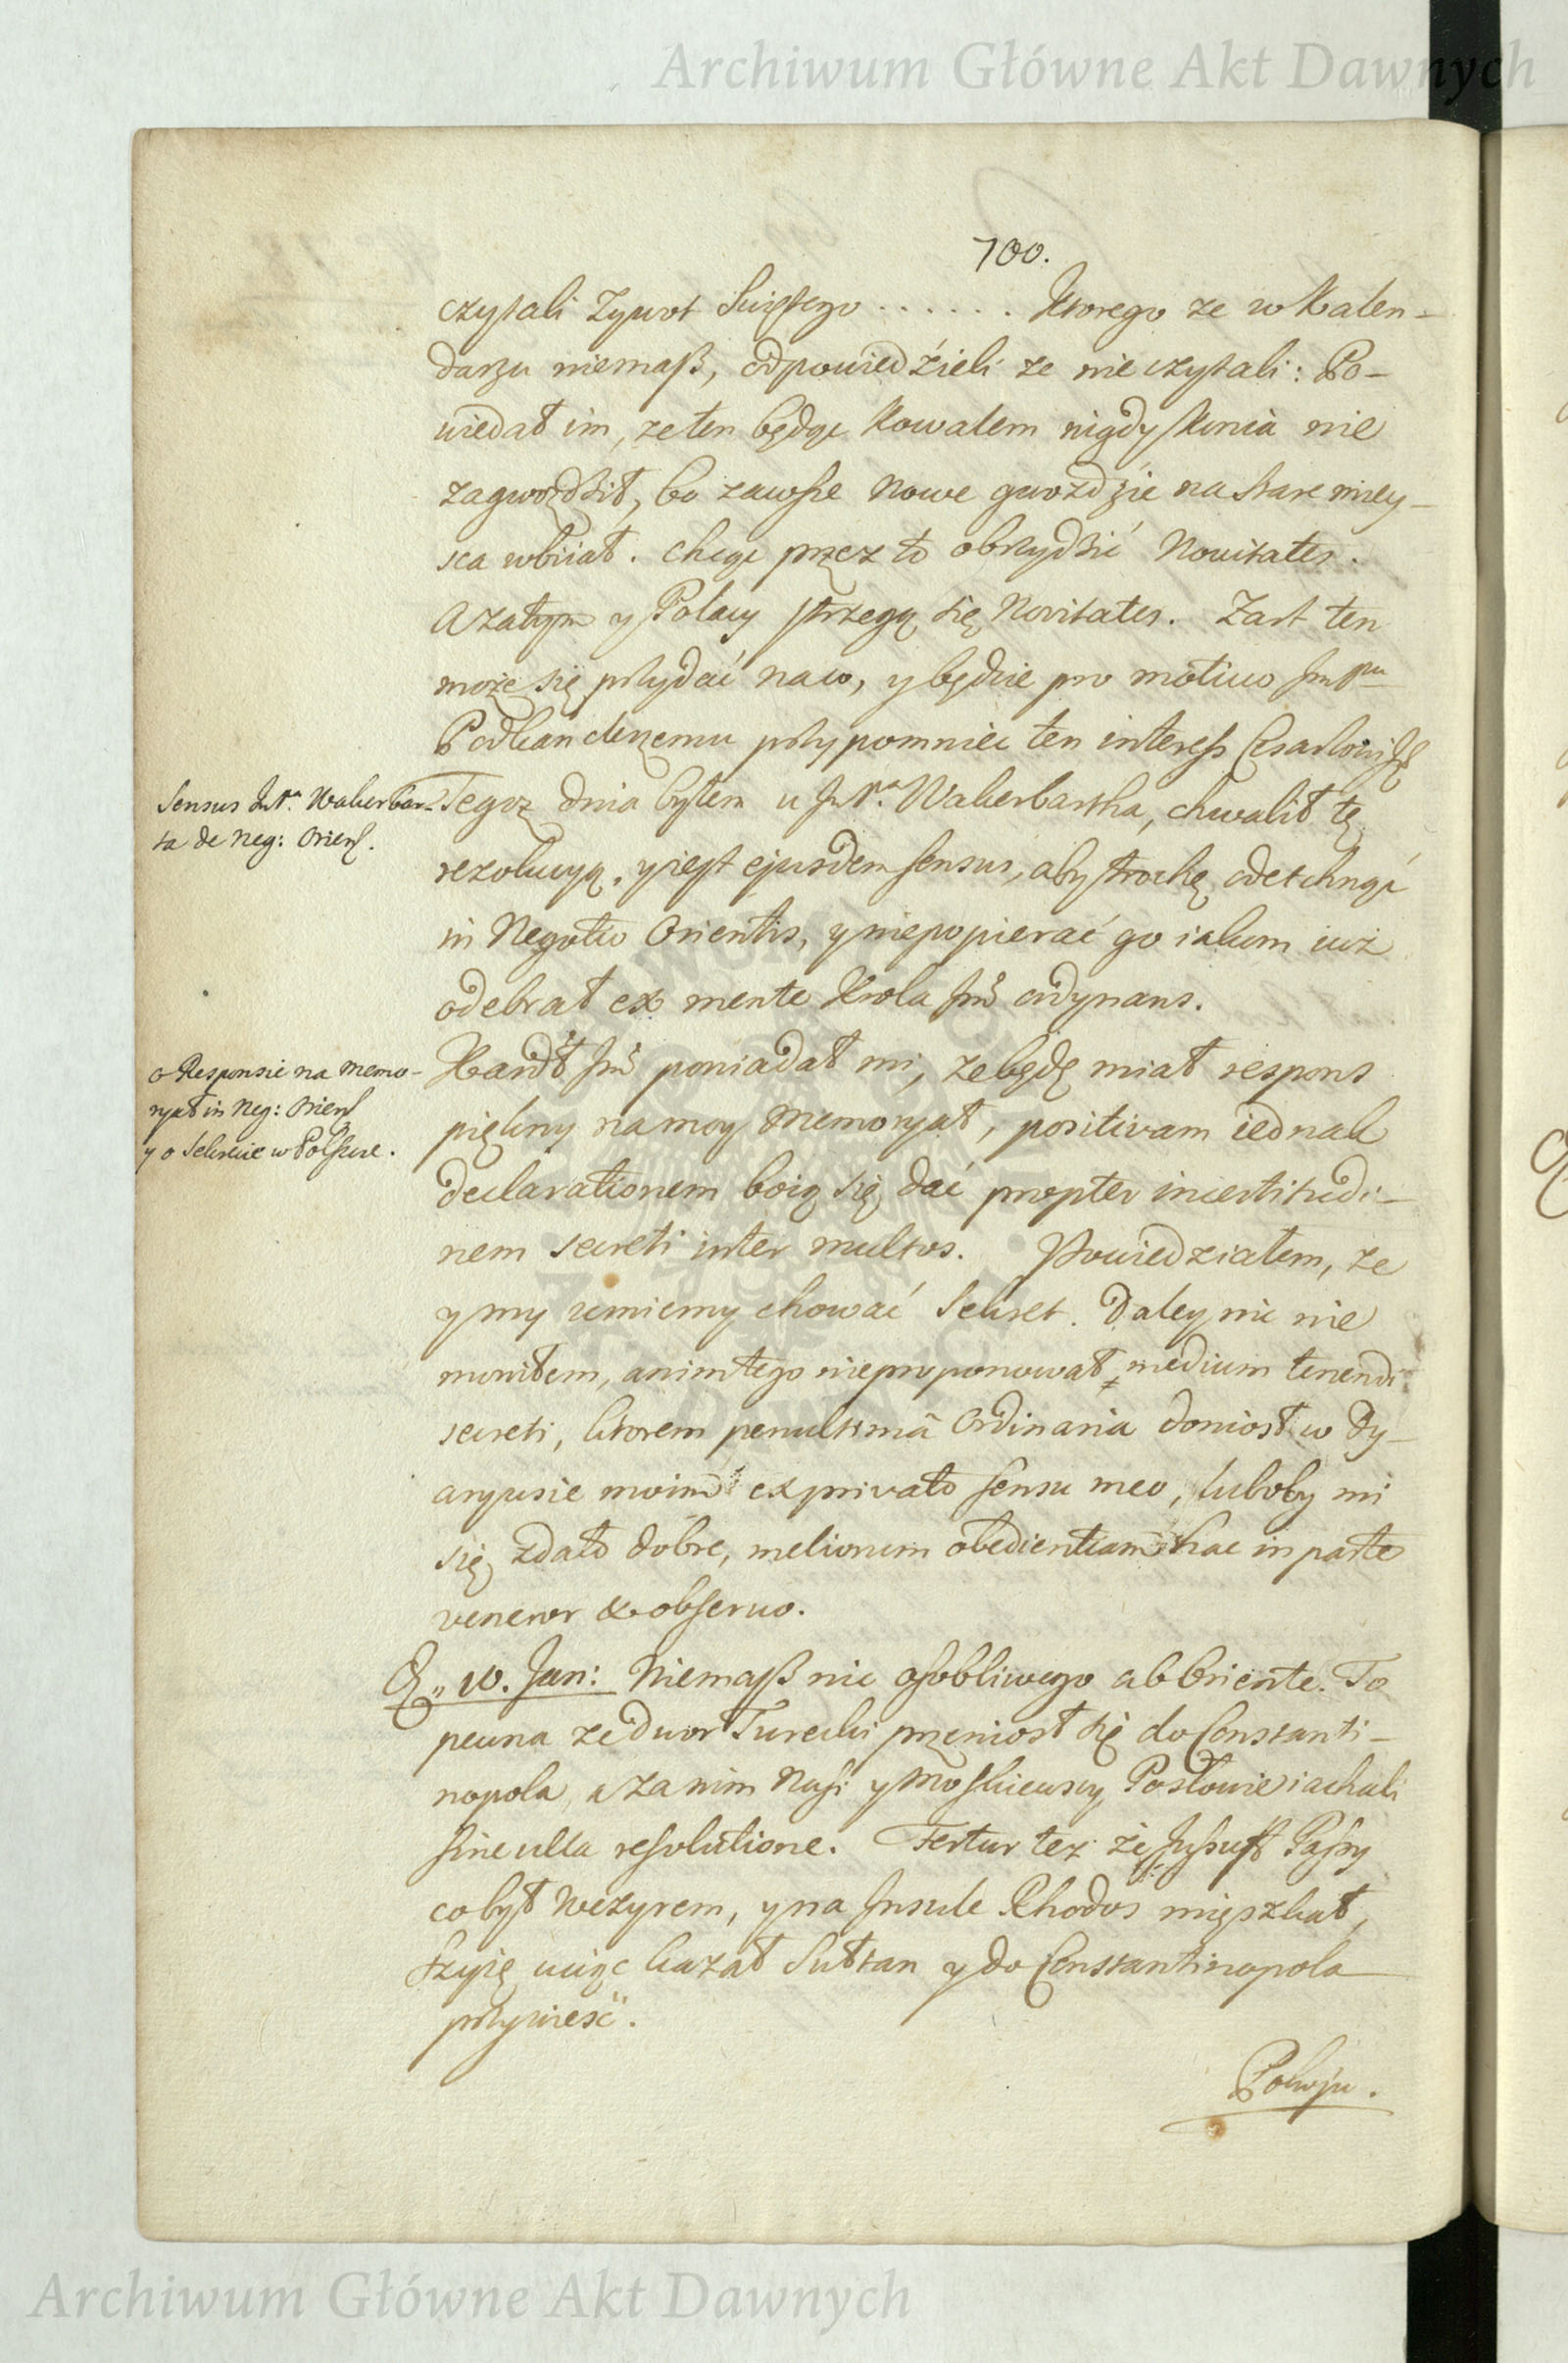 Archiwum Główne Akt Dawnych
700.
czytali Zywot Swiętego . . . . . . Ktorego ze w Kalen-
darzu niemaß, odpowiedźieli ze nie czytali: Po-
wiedał im, ze ten będąc Kowalem nigdy Konia nie
zagwoźdźił, bo zawsze nowe gwoźdźie na stare miey-
sca wbiiał. chcąc przez to obrzydźić Novitates.
A zatym y Polacy strzegą się Novitates. Zart ten
może się przydać na co, y będzie pro motivo Jm Pnu
Podkanclerzemu przypomniec ten interess
Sensus JmPa. Wakerbar-
ta de Neg: Orient.
Tegoż dnia byłem u JmPa. Wakerbartha, chwalił tę
rezolucyą, y iest ejusdem sensus, aby trochę odetchnąć
in Negotio Orientis, y niepopierać go iakom iuż
odebrał ex mente Krola Jmć ordynans.
o Responsie na Memo-
ryał in Neg: Orient
y o Sekrecie w Polszcze.
Jmć powiadał mi, ze będę miał respons
piękny na moy Memoryał, positivam iednak
declarationem boią się dać propter incertitudi-
nem secreti inter multos. Powiedziałem, ze
y my umiemy chować Sekret. Daley nic nie
mowiłem, anim tego nieproponował, medium tenendi
secreti, ktorem penultimâ Ordinaria doniosł w Dy-
aryusie moim ex privato sensu meo, luboby mi
się zdało dobre, meliorem obedientiam hac in parte
veneror & observo.
10. Jan: Niemaß nic osobliwego ab Oriente. To
pewna ze dwor Turecki przeniosł się do Constanti-
nopola, a za nim Nasi y Moskiewscy Posłowie iachali
sine ulla resolutione. Fertur tez że Jusuff Paszy
co był Wezyrem, y na Insule Rhodos mięszkał,
szyię uciąc kazał Sułtan y do Constantinopola
przywieść.
Pokoju.
Archiwum Główne Akt Dawnych